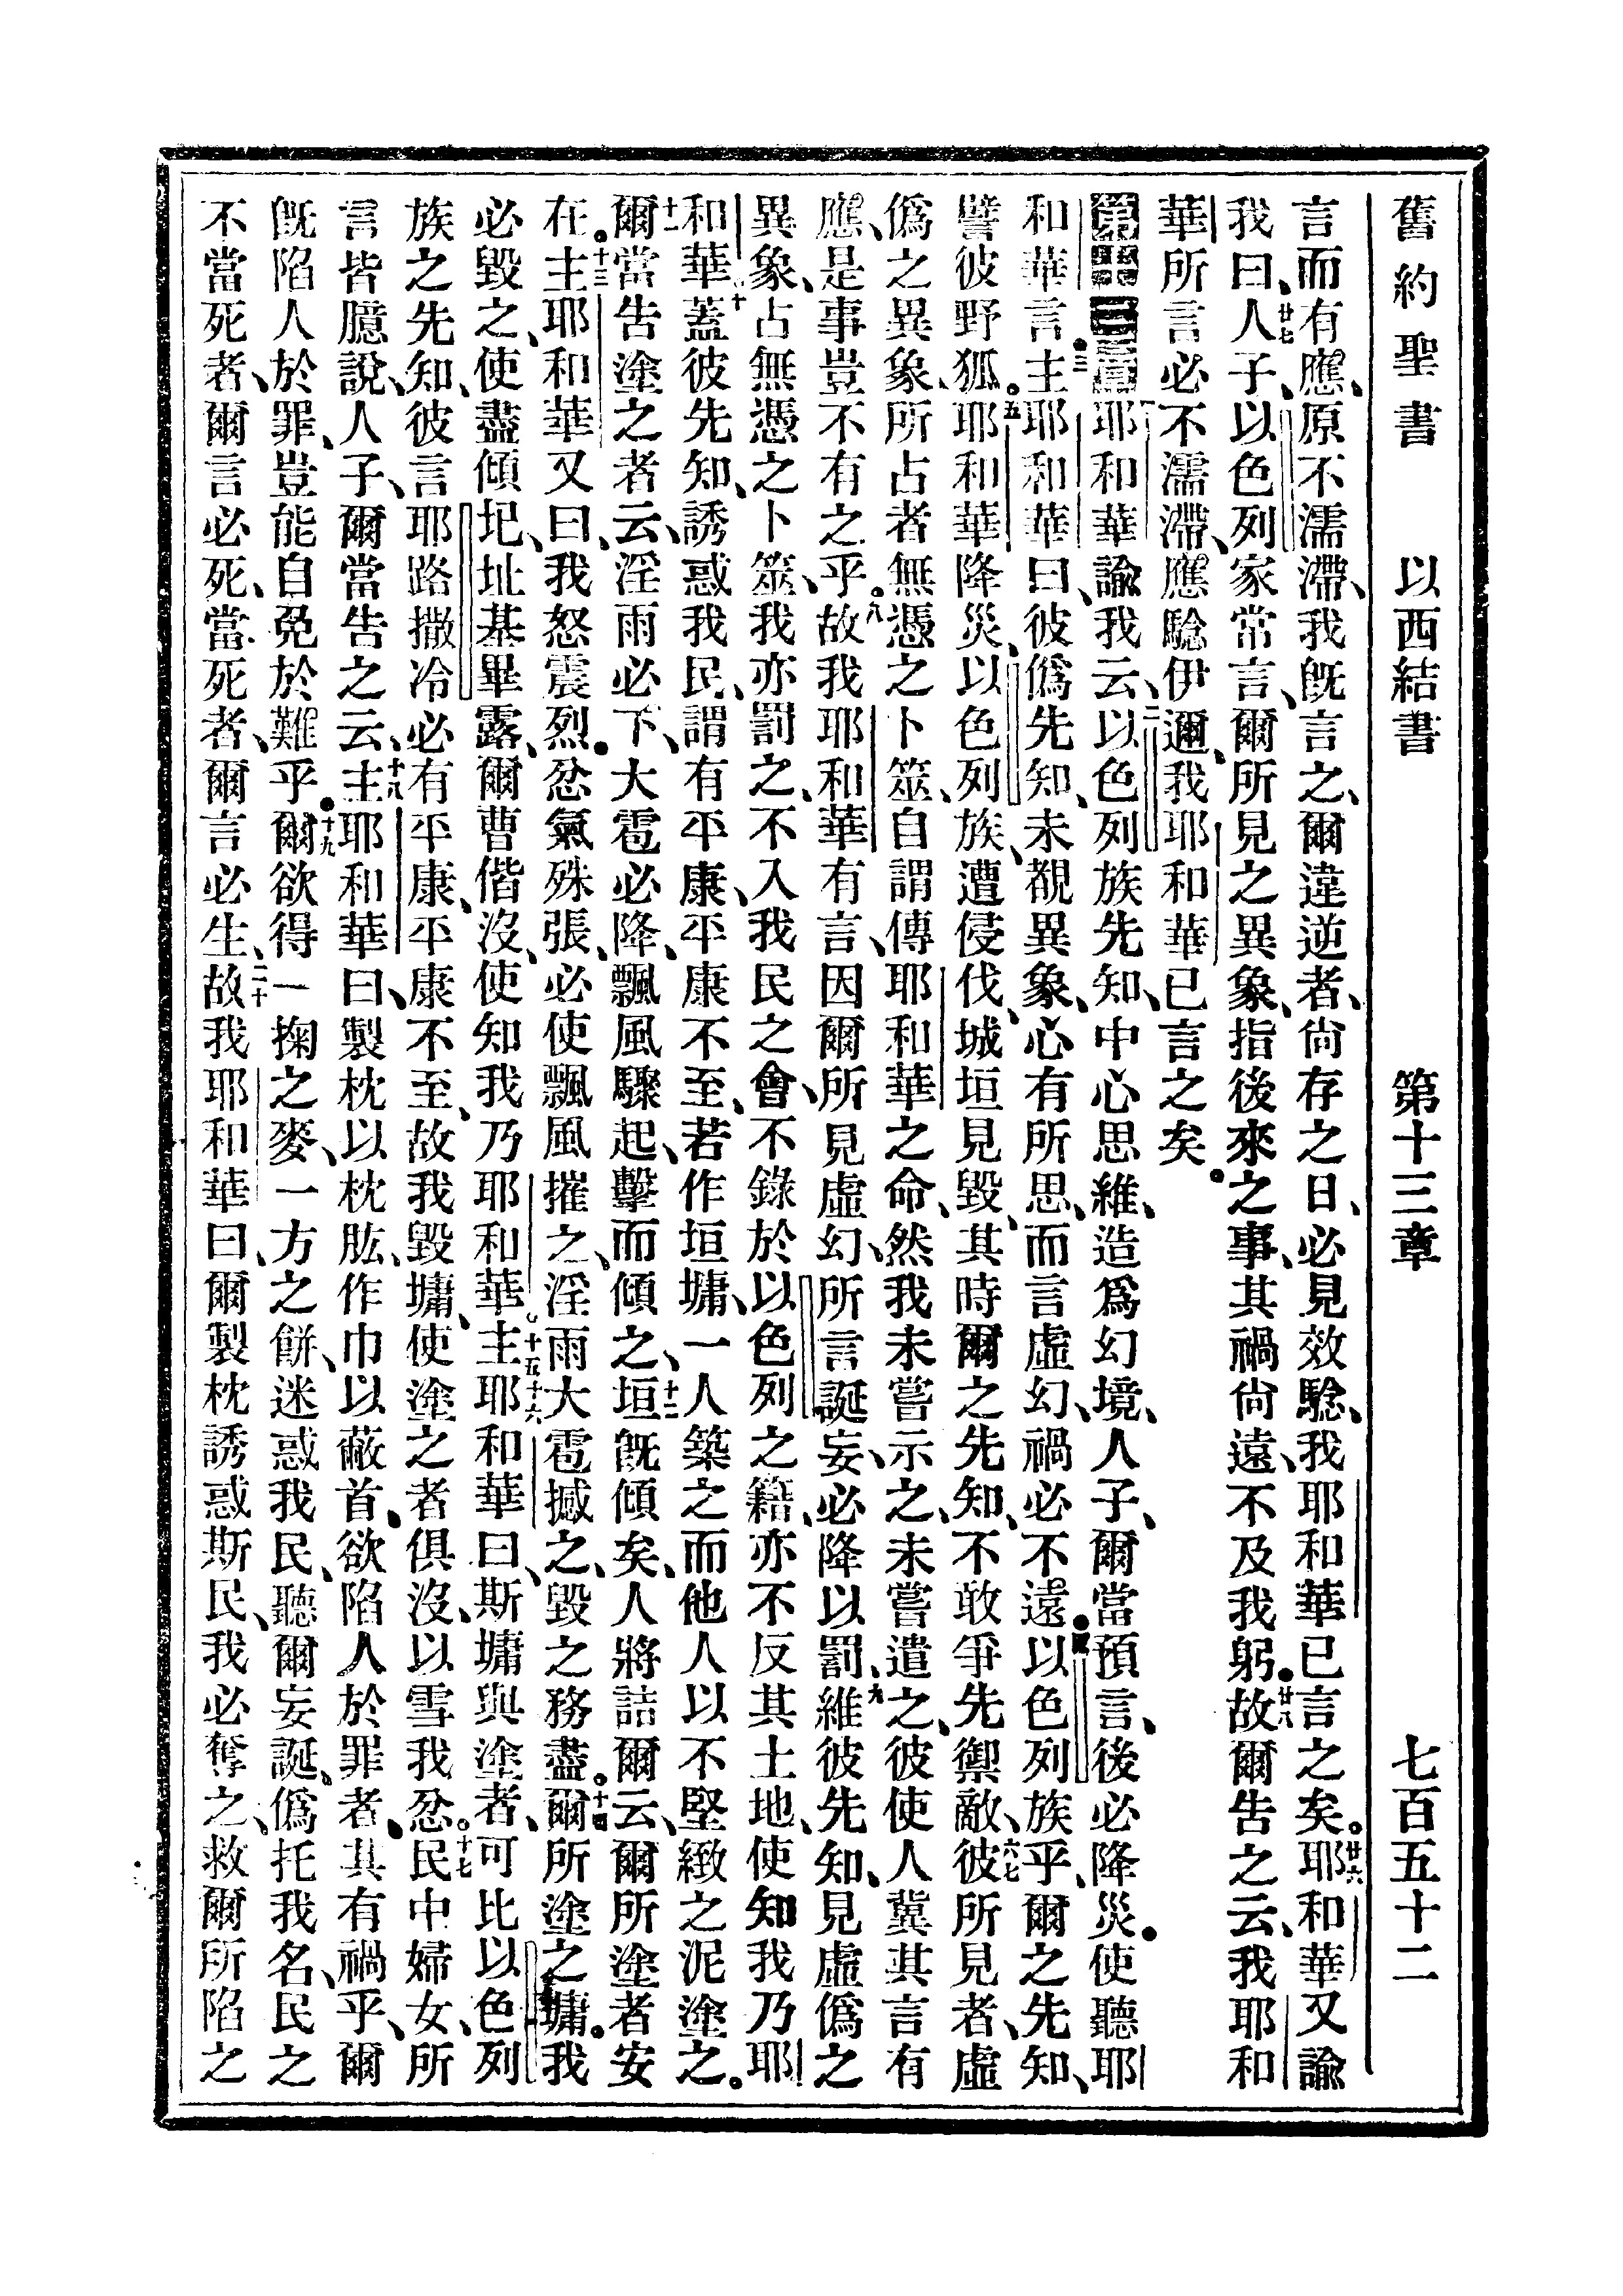 舊約聖書 以西結書 第十三章 七百五十二
言而有應、原不濡滯、我旣言之、爾違逆者、尙存之日、必見效騐、我耶和華已言之矣。廿六耶和華又諭
我曰、廿七人子、以色列家常言、爾所見之異象、指後來之事、其禍尙遠、不及我躬。廿八故爾告之云、我耶和
華所言必不濡滯、應騐伊邇、我耶和華已言之矣。
第十三章 耶和華諭我云、二以色列族先知、中心思維、造爲幻境、人子、爾當預言、後必降災。使聽耶
和華言。三主耶和華曰、彼僞先知、未覩異象、心有所思、而言虛幻、禍必不遠。四以色列族乎、爾之先知、
譬彼野狐。五耶和華降災、以色列族、遭侵伐、城垣見毀、其時爾之先知、不敢爭先禦敵、六七彼所見者、虛
僞之異象、所占者無憑之卜筮、自謂傳耶和華之命、然我未嘗示之、未嘗遣之、彼使人冀其言有
應、是事豈不有之乎。八故我耶和華有言、因爾所見虛幻、所言誕妄、必降以罰、九維彼先知、見虛僞之
異象、占無憑之卜筮、我亦罰之、不入我民之會、不錄於以色列之籍、亦不反其土地、使知我乃耶
和華、十蓋彼先知、誘惑我民、謂有平康、平康不至、若作垣墉、一人築之、而他人以不堅緻之泥塗之。
十一爾當告塗之者云、淫雨必下、大雹必降、飄風驟起、擊而傾之、十二垣旣傾矣、人將詰爾云、爾所塗者安
在。十三主耶和華又曰、我怒震烈。忿氣殊張、必使飄風摧之、淫雨大雹撼之、毀之務盡。十四爾所塗之墉。我
必毀之、使盡傾圮、址基畢露、爾曹偕沒、使知我乃耶和華。十五十六主耶和華曰、斯墉與塗者、可比以色列
族之先知、彼言耶路撒冷必有平康、平康不至、故我毀墉、使塗之者俱沒、以雪我忿。十七民中婦女、所
言皆臆說、人子、爾當告之云、十八主耶和華曰、製枕以枕肱、作巾以蔽首、欲陷人於罪者、其有禍乎、爾
旣陷人於罪、豈能自免於難乎。十九爾欲得一掬之麥、一方之餅、迷惑我民、聽爾妄誕、僞托我名、民之
不當死者、爾言必死、當死者、爾言必生、二十故我耶和華曰、爾製枕誘惑斯民、我必奪之、救爾所陷之